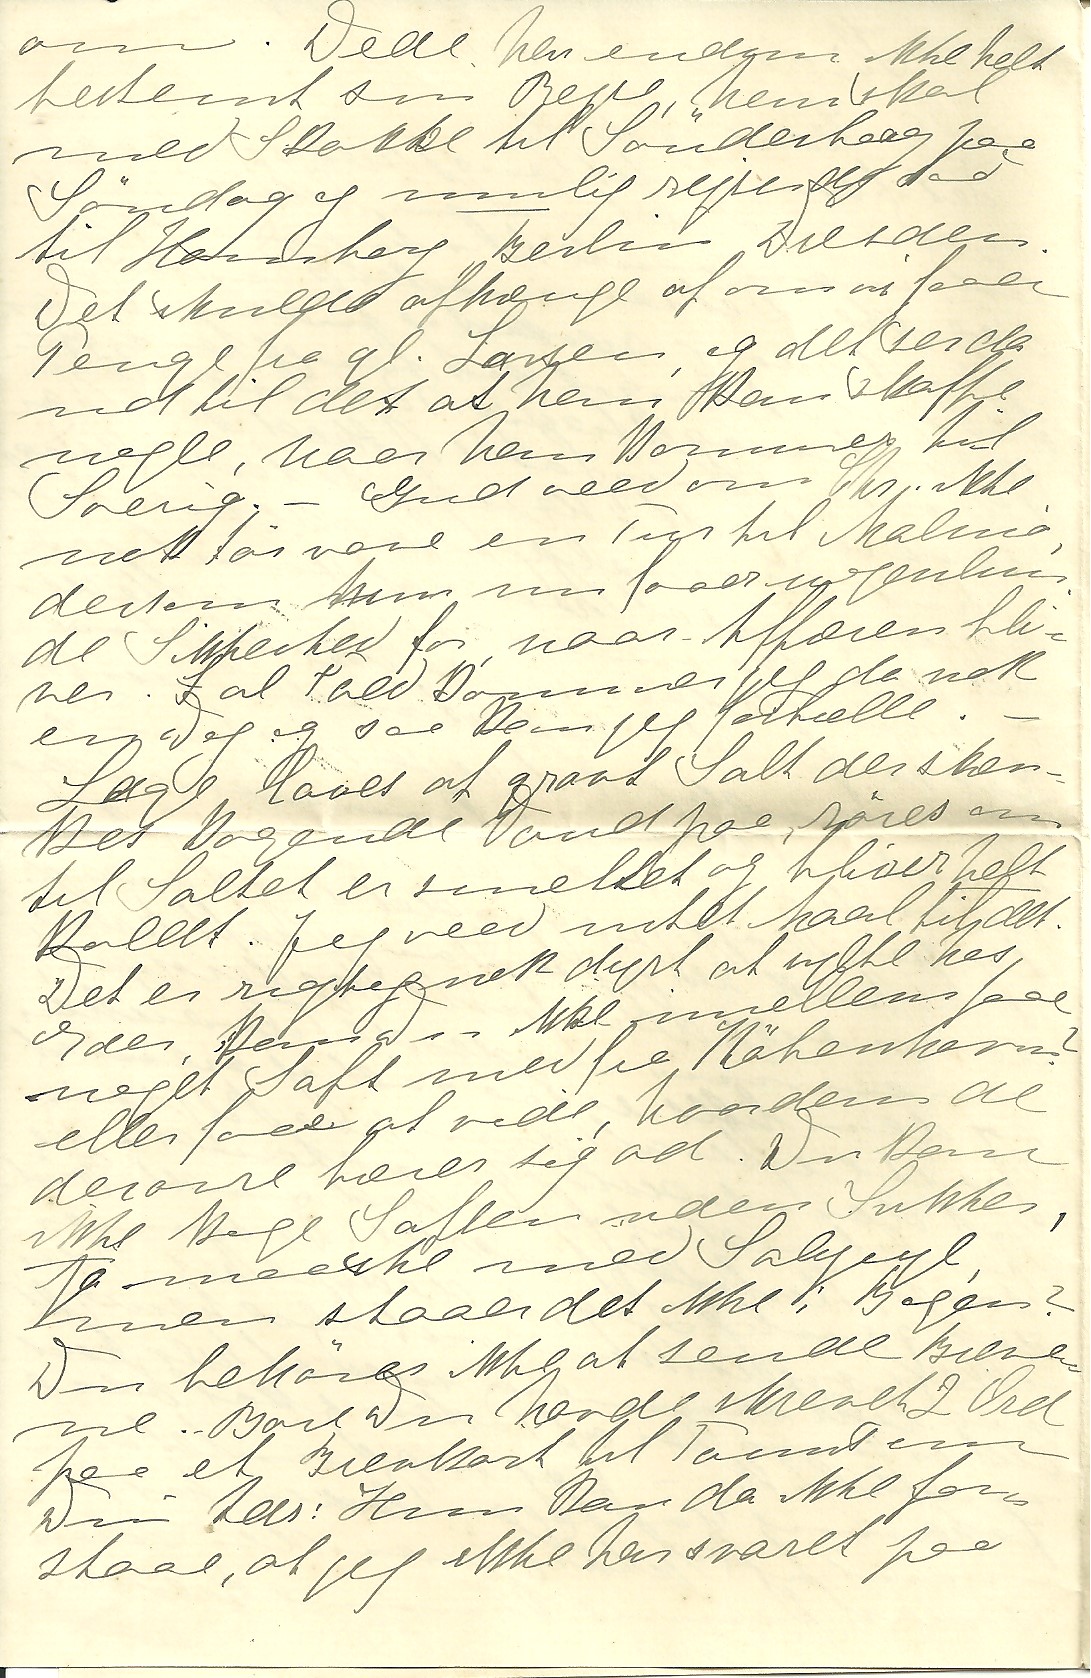 om. Dede har endnu ikke helt
bestemt sin Rejse, han skal
med Stokke til Sönderhaag paa
Söndag og mulig rejser
til Hamborg, Berlin Dresden.
Det skulde afhænge af om vi faaer
Penge fra gl. Larsen, og det ser da
ud til det at han kan skaffe
nogle, naar han kommer til
Sverig. – Gud veed om Chr. ikke
nok tör vove en Tur til Malmö,
dersom hun nu faaer nogenlun
de Sikkerhed for, naar Affæren bli-
ver. I al Fald kommer jeg da nok
en Dag og saa kan jeg fortælle. –
Lage laves af groft Salt der skæn-
kes kogende Vand paa, röres om
til Saltet er smeltet og bliver helt
koldt. Jeg veed intet Maal til det.
Det er rigtignok dyrt at sylte hos
Eder, kan I ikke imellem faae
noget Saft med fra Köbenhavn?
eller faae at vide, hvordan de
derovre bærer sig ad. Du kan
ikke koge Saften uden Sukker,
Jo maaske med Salycyl,
men staaer det ikke i Bogen?
Du behöver ikke at sende Breve
ne. Bare Du havde skrevet 2 Ord
paa et Brevkort til
Din her: Hun kan da ikke for
staae, at jeg ikke har svaret paa